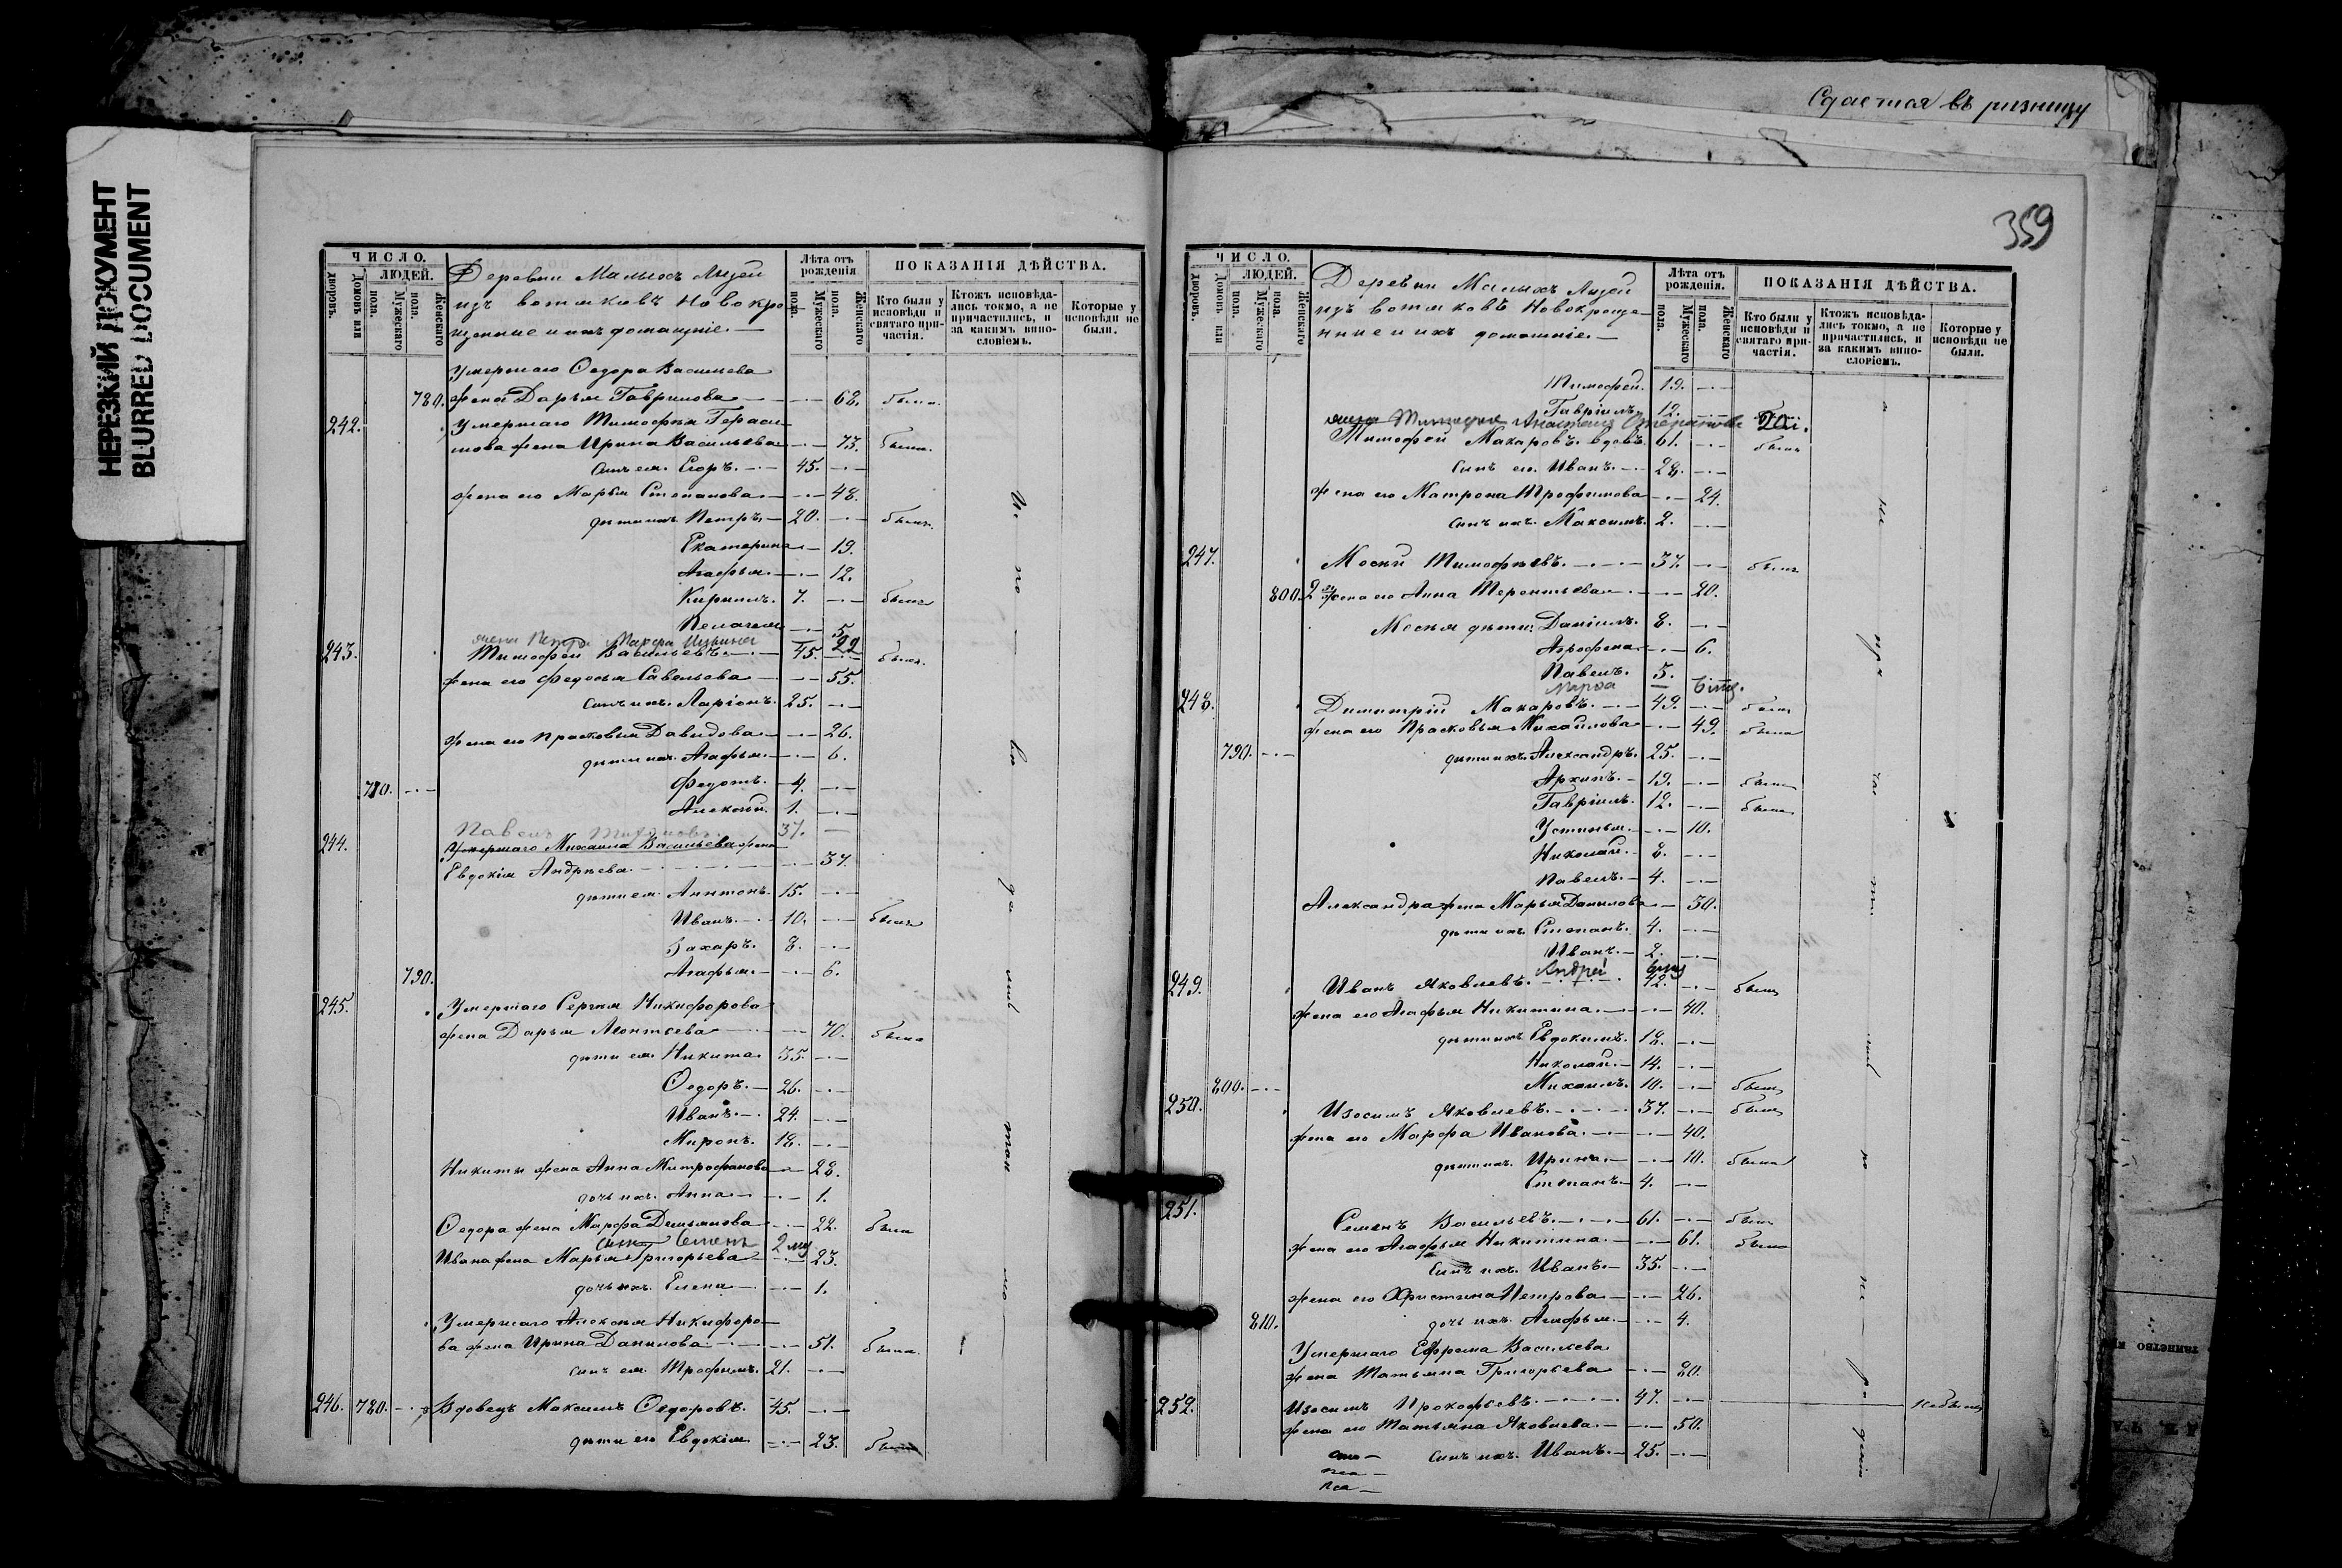 НЕРЕЗКИЙ ДОКУМЕНТ
BLURRED DOCUMENT
Сдается въ ризницу
359
ЧИСЛО.
ЛЮДЕЙ.
Домовъ или дворовъ.
Мужескаго пола.
Женскаго пола.
Деревни Малыхъ Людей
изъ вотяковъ Новокре
щенные и ихъ домашніе.
Лѣта отъ рожденія
Мужескаго пола.
Женскаго пола.
ПОКАЗАНІЯ ДѢЙСТВА.
Кто были у исповѣди и святаго причастія.
Ктожъ исповѣдались токмо, а не причастились, и за какимъ винословіемъ.
Которые у исповѣди не были.
Умершаго Ѳедора Васильева
780. жена Дарья Гаврилова — 68. была
242. Умершаго Тимофея Гераси
мова жена Ирина Васильева — 73. была
сынъ ея Егоръ. 45.
жена его Марья Степанова — 48.
дѣти ихъ Петръ 20. былъ
Екатерина 19.
Агафья 12.
Кирилъ. 7. былъ
Пелагея 5
жена Петра Марфа 22
243. Тимофей Васильевъ 45. былъ
жена его Федосья Савельева 55.
сынъ ихъ Ларіонъ. 25.
жена его Прасковья Давидова 26.
дѣти ихъ Агафья 6.
710. Федотъ. 4.
Алексѣй 1.
Павелъ 37.
244. Умершаго Михаила Васильева жена
Евдокія Андреева 37.
дѣти ея Антонъ 15.
Иванъ 10. былъ
Захаръ. 8.
790. Агафья 6.
245. Умершаго Сергея Никифорова
жена Дарья Леонтьева 70. была
дѣти ея Никита 35.
Ѳедоръ. 26.
Иванъ 24.
Миронъ. 18.
Никиты жена Анна Митрофанова 28.
дочь ихъ Анна 1.
Ѳедора жена Марфа Демьянова 22. была
сынъ Семенъ 2 мц
Ивана жена Марья Григорьева 23.
дочь ихъ Елена 1.
Умершаго Алексея Никифоро
ва жена Ирина Данилова 51. была
сынъ ея Трофимъ. 21.
246. 780. Вдовецъ Максимъ Ѳедоровъ. 45.
дѣти его Евдокія 23. была
ЧИСЛО.
ЛЮДЕЙ.
Домовъ или дворовъ.
Мужескаго пола.
Женскаго пола.
Деревни Малыхъ Людей
изъ вотяковъ Новокреще
нные и ихъ домашніе.
Лѣта отъ рожденія.
Мужескаго пола.
Женскаго пола.
ПОКАЗАНІЯ ДѢЙСТВА.
Кто были у исповѣди и святаго причастія.
Ктожъ исповѣдались токмо, а не причастились, и за какимъ винословіемъ.
Которые у исповѣди не были.
Тимофей. 19.
Гавріилъ 12.
Анастасия Степанова 20.
Тимофей Макаровъ вдовъ 61. былъ
сынъ его Иванъ 28.
жена его Матрона Трофимова 24.
сынъ ихъ Максимъ. 2.
247. Мосей Тимофѣевъ. 37. былъ
800. 2я жена его Анна Терентьева 20.
Мосея дѣти: Даніилъ. 8.
Агрофена 6.
Павелъ. 5.
Марфа 6 мц.
248. Димитрій Макаровъ. 49. былъ
жена его Прасковья Михайлова 49. была
790. дѣти ихъ Александръ. 25.
Архипъ. 19. былъ
Гавріилъ. 12. былъ
Устинья 10.
Николай 8.
Павелъ. 4.
Александра жена Марья Данилова 30.
дѣти ихъ Степанъ. 4.
Иванъ 2.
Андрей 6 мц
249. Иванъ Яковлевъ. 42. былъ
жена его Агафья Никитина 40.
дѣти ихъ Евдокимъ. 18.
Николай 14.
800. Михаилъ. 10. былъ
250. Изосимъ Яковлевъ. 37. былъ
жена его Марфа Иванова. 40.
дѣти ихъ Ирина 10. была
Степанъ 4.
251. Семенъ Васильевъ. 61. былъ
жена его Агафья Никитина 61. была
сынъ ихъ Иванъ 35.
жена его Христина Петрова 26.
810. дочь ихъ Агафья 4.
Умершаго Ефрема Васильева
жена Татьяна Григорьева 80.
252. Изосимъ Прокофьевъ 47. не былъ
жена его Татьяна Яковлева 50.
сынъ ихъ Иванъ 25.